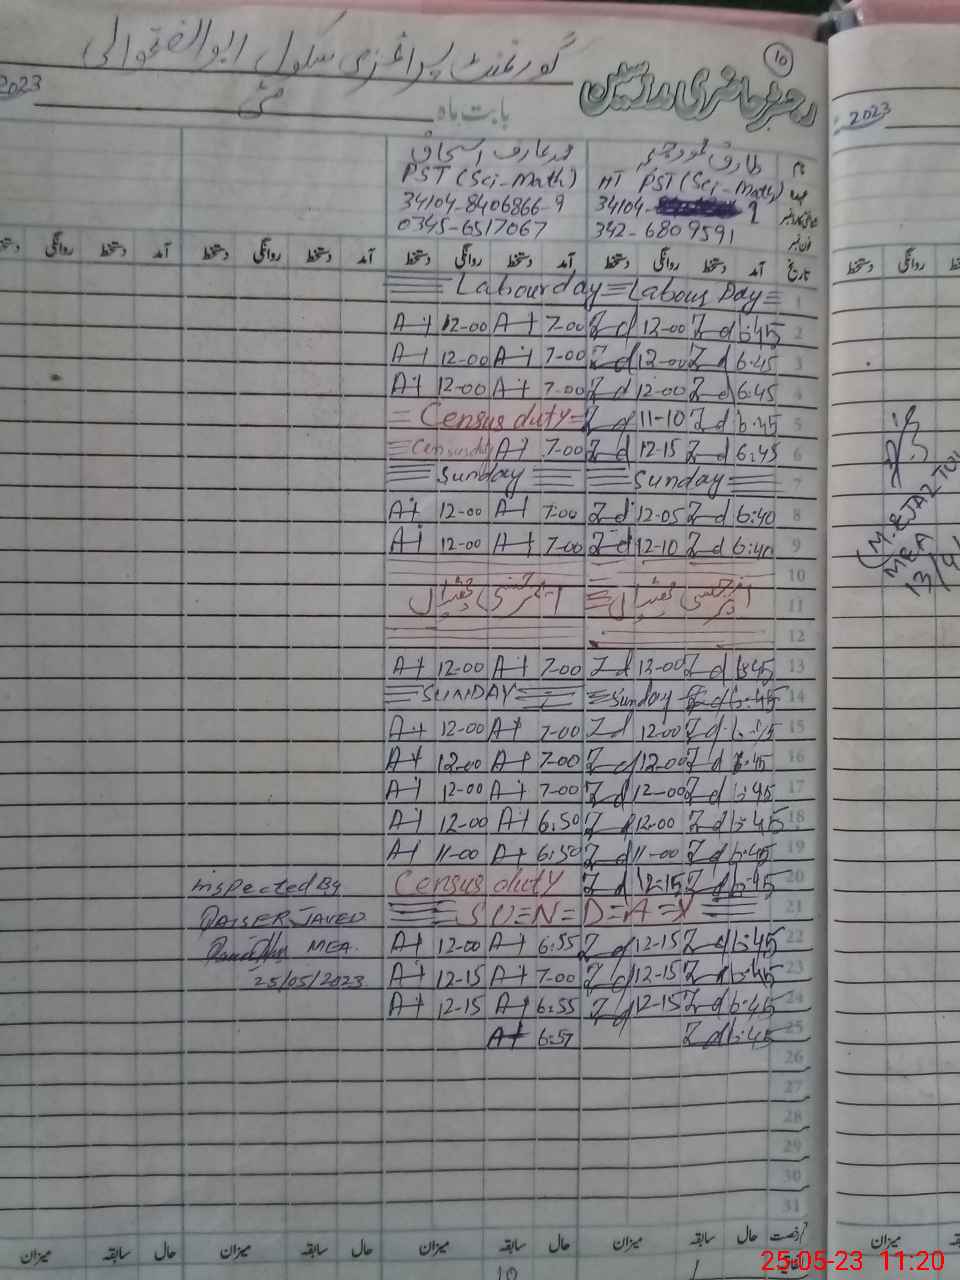 10
رجسٹر حاضری مدرسین
گورنمنٹ پرائمری سکول ابوالفتحوالی
بابت ماہ مئی 2023
2023
نام طارق محمود محمد عارف اسحاق
عہدہ HT PST (Sci-Math) PST (Sci-Math)
34104- 9 34104-8406866-9
342-6809591 0345-6517067
تاریخ آمد دستخط روانگی دستخط آمد دستخط روانگی دستخط آمد دستخط روانگی دستخط روانگی دستخط
1 Labour Day Labour day
2 6:45 Zd 12-00 Zd 7-00 A+ 12-00 A+
3 6:45 Zd 12-00 Zd 7-00 A+ 12-00 A+
4 6:45 Zd 12-00 Zd 7-00 A+ 12-00 A+
5 6:45 Zd 11-10 Zd Census duty
6 6:45 Zd 12-15 Zd 7-00 A+ Census duty
7 Sunday Sunday
8 6:40 Zd 12-05 Zd 7:00 A+ 12-00 A+
9 6:40 Zd 12-10 Zd 7-00 A+ 12-00 A+
10
11
12
13 6:45 Zd 12-00 Zd 7-00 A+ 12-00 A+
14 6:45 Sunday SUNDAY
15 Zd 12-00 Zd 7-00 A+ 12-00 A+
16 6:45 Zd 12-00 Zd 7-00 A+ 12-00 A+
17 6:45 Zd 12-00 Zd 7-00 A+ 12-00 A+
18 6:45 Zd 12-00 Zd 6:50 A+ 12-00 A+
19 6:45 Zd 11-00 Zd 6:50 A+ 11-00 A+
20 6:45 Zd 12-15 Zd Census duty
21 S=U=N=D=A=Y
22 6:45 Zd 12-15 Zd 6:55 A+ 12-00 A+
23 6:45 Zd 12-15 Zd 7-00 A+ 12-15 A+
24 6:45 Zd 12-15 Zd 6:55 A+ 12-15 A+
25 6:45 Zd 6:57 A+
26
27
28
29
30
31
Inspected By
QAISER JAVED
MEA.
25/05/2023
M. EJAZ
MEA
رخصت حال سابقہ میزان حال سابقہ میزان حال سابقہ میزان حال سابقہ میزان میزان
25-05-23 11:20